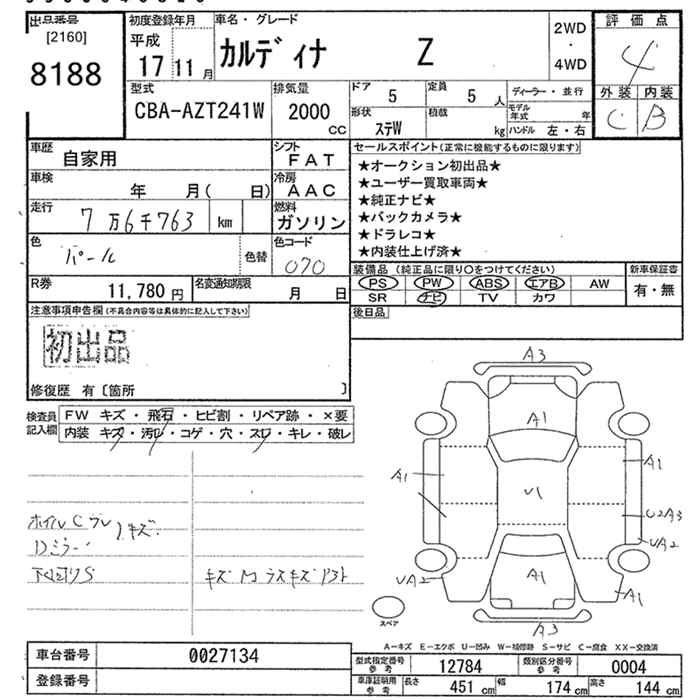 出品番号
[2160]
8188
初度登録年月
平成
17 11 月
車名・グレード
カルディナ Z
2WD
・
4WD
評価点
4
外装 内装
C B
型式
CBA-AZT241W
排気量
2000
CC
ドア 5
定員 5 人
ディーラー・並行
形状 ステW
積載 kg
モデル年式 年
ハンドル 左・右
車歴 自家用
シフト FAT
車検 年 月( 日)
冷房 AAC
走行 7万6千763 km
燃料 ガソリン
色 パール
色替
色コード 070
R券 11,780 円
名変通知期限 月 日
セールスポイント(正常に機能するものに限ります)
★オークション初出品★
★ユーザー買取車両★
★純正ナビ★
★バックカメラ★
★ドラレコ★
★内装仕上げ済★
装備品 (純正品に限り○をつけてください)
新車保証書
PS PW ABS エアB AW
有・無
SR ナビ TV カワ
後日品
注意事項申告欄(不具合内容等は具体的に記入して下さい)
初出品
修復歴 有〔箇所 〕
検査員記入欄
FW キズ・飛石・ヒビ割・リペア跡・×要
内装 キズ・汚レ・コゲ・穴・スレ・キレ・破レ
ホイルCフレ
キズ
Dミラー
A3
A1
A1
A1
U1
U2A3
UA2
UA2
A1
A1
A3
スペア
A-キズ E-エクボ U-凹み W-補修跡 S-サビ C-腐食 XX-交換済
車台番号 0027134
登録番号
型式指定番号参考 12784
類別区分番号参考 0004
車庫証明用参考
長さ 451 cm
幅 174 cm
高さ 144 cm